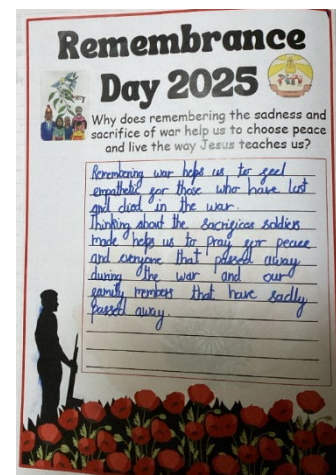 Remembrance
Day 2025
Why does remembering the sadness and
sacrifice of war help us to choose peace
and live the way Jesus teaches us?
Remembering war helps us to feel
empathetic for those who have lost
and died in the war.
Thinking about the sacrifices soldiers
made helps us to pray for peace
and everyone that passed away
during the war and our
family members that have sadly
passed away.